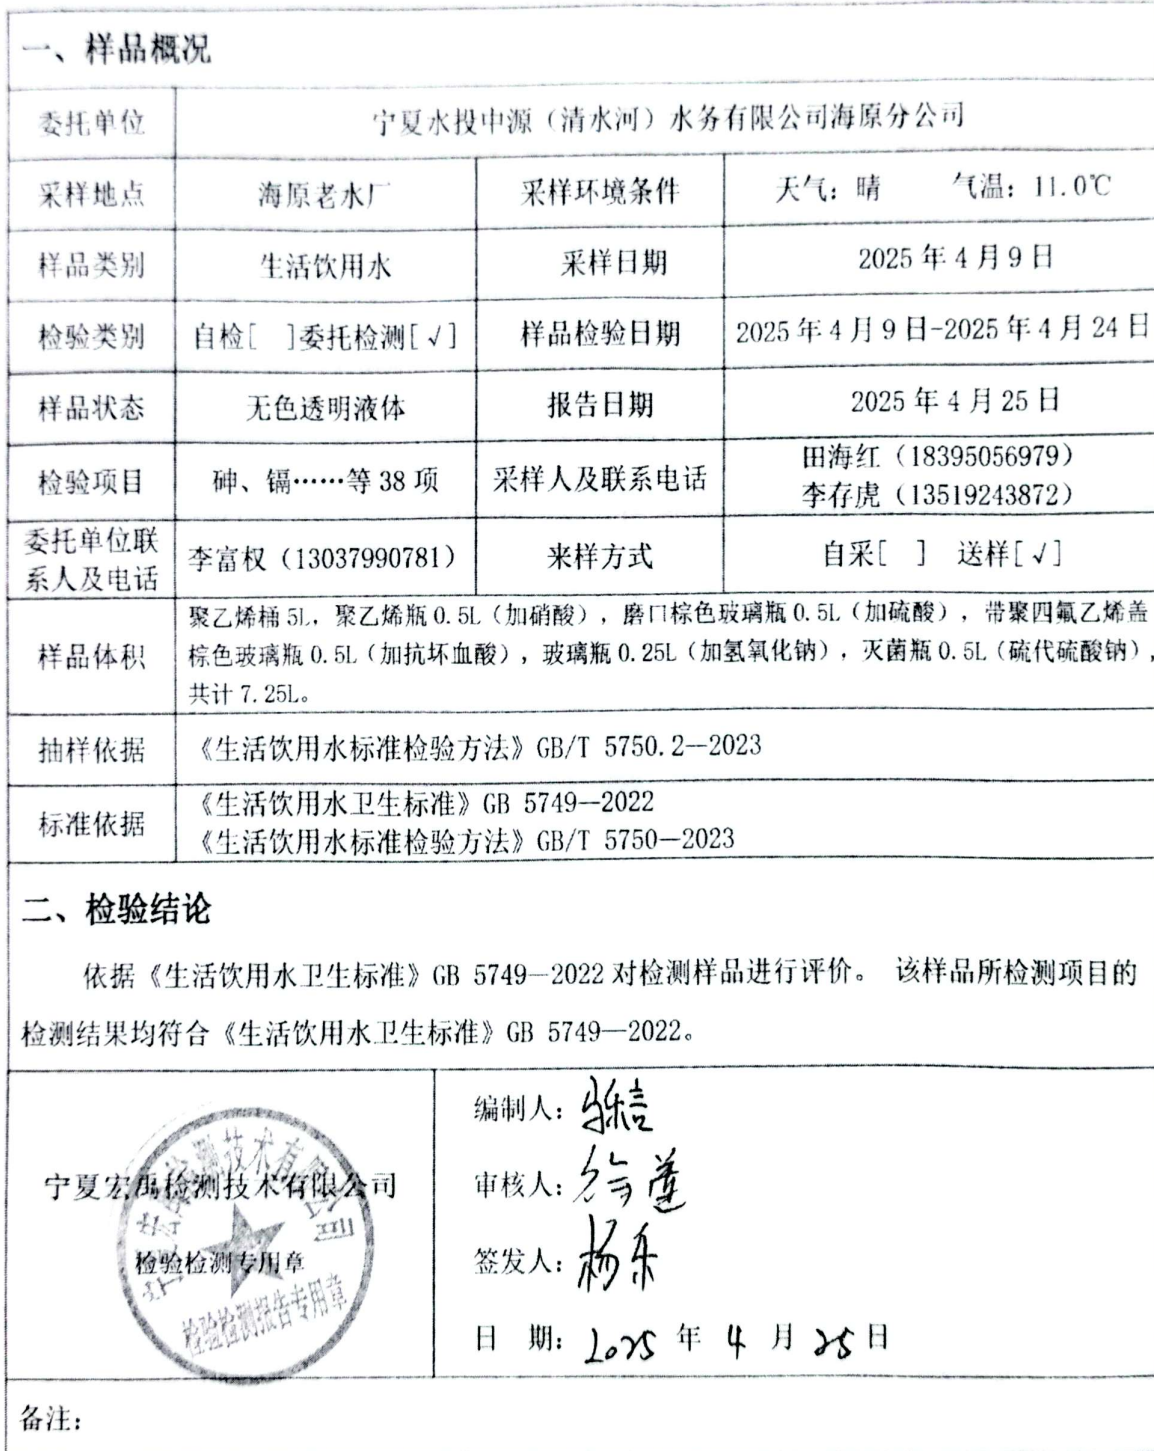 一、样品概况
委托单位 宁夏水投中源（清水河）水务有限公司海原分公司
采样地点 海原老水厂 采样环境条件 天气：晴 气温：11.0℃
样品类别 生活饮用水 采样日期 2025年4月9日
检验类别 自检[ ]委托检测[√] 样品检验日期 2025年4月9日-2025年4月24日
样品状态 无色透明液体 报告日期 2025年4月25日
检验项目 砷、镉……等38项 采样人及联系电话 田海红（18395056979）
李存虎（13519243872）
委托单位联
系人及电话 李富权（13037990781） 来样方式 自采[ ] 送样[√]
聚乙烯桶5L，聚乙烯瓶0.5L（加硝酸），磨口棕色玻璃瓶0.5L（加硫酸），带聚四氟乙烯盖
样品体积 棕色玻璃瓶0.5L（加抗坏血酸），玻璃瓶0.25L（加氢氧化钠），灭菌瓶0.5L（硫代硫酸钠），
共计7.25L。
抽样依据 《生活饮用水标准检验方法》GB/T 5750.2—2023
标准依据 《生活饮用水卫生标准》GB 5749—2022
《生活饮用水标准检验方法》GB/T 5750—2023
二、检验结论
依据《生活饮用水卫生标准》GB 5749—2022对检测样品进行评价。 该样品所检测项目的
检测结果均符合《生活饮用水卫生标准》GB 5749—2022。
宁夏宏禹检测技术有限公司
检验检测专用章
检验检测报告专用章
编制人：
审核人：徐莲
签发人：杨乐
日 期：2025年4月25日
备注：